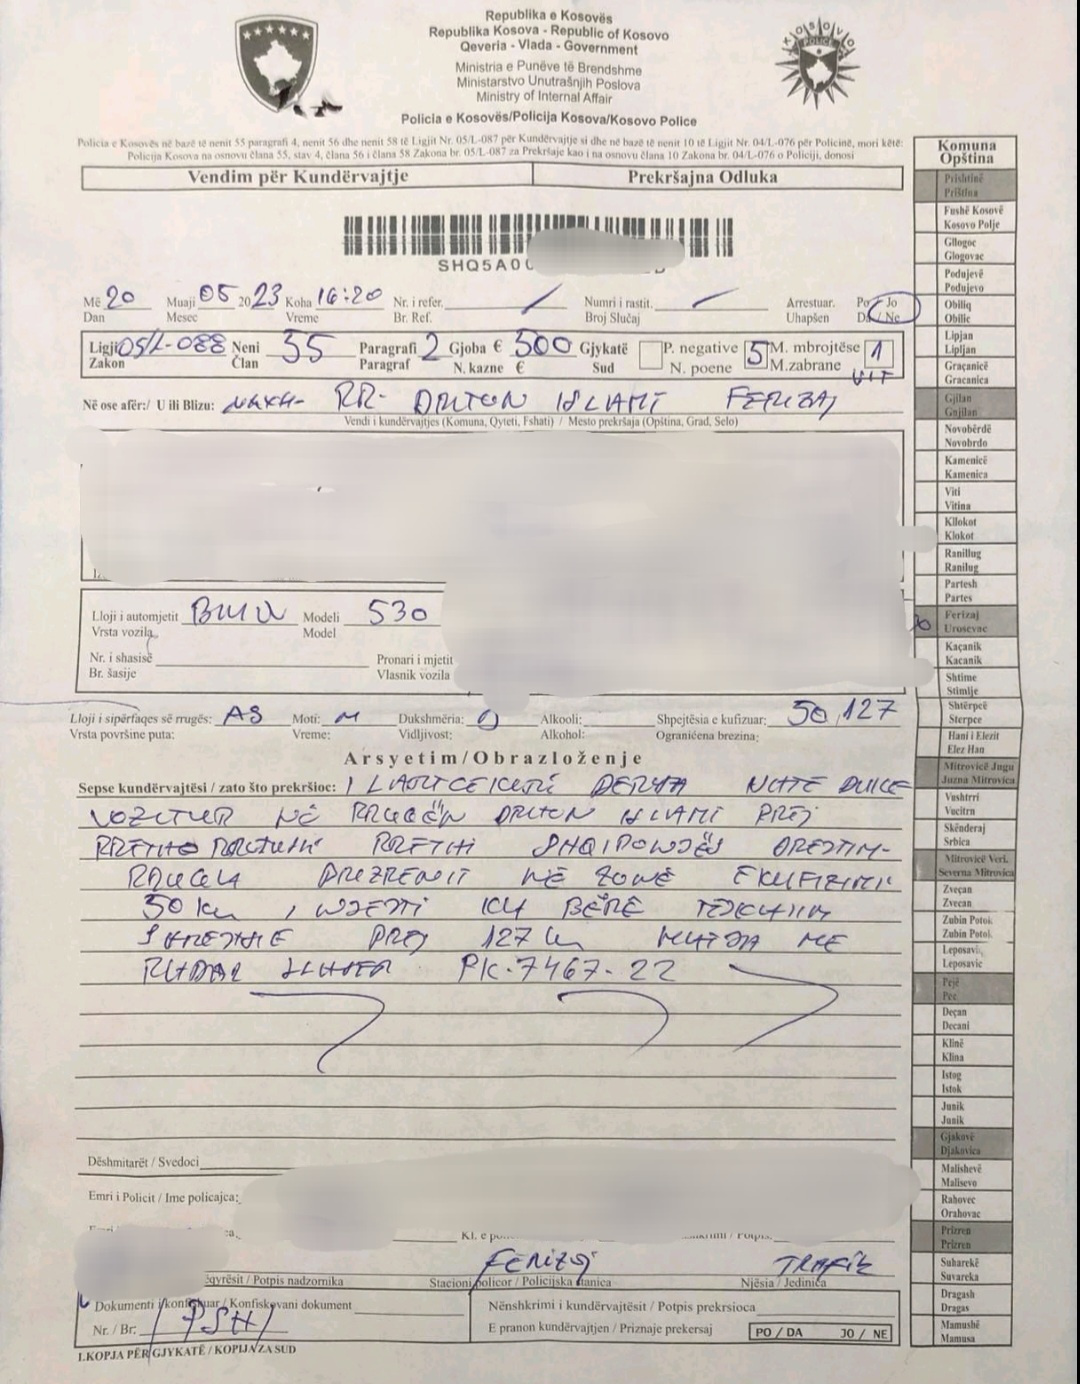 Republika e Kosovës
Republika Kosova - Republic of Kosovo
Qeveria - Vlada - Government
Ministria e Punëve të Brendshme
Ministarstvo Unutrašnjih Poslova
Ministry of Internal Affair
Policia e Kosovës/Policija Kosova/Kosovo Police
KOSOVO
POLICE
Policia e Kosovës në bazë të nenit 55 paragrafi 4, nenit 56 dhe nenit 58 të Ligjit Nr. 05/L-087 për Kundërvajtje si dhe në bazë të nenit 10 të Ligjit Nr. 04/L-076 për Policinë, mori këtë:
Policija Kosova na osnovu člana 55, stav 4, člana 56 i člana 58 Zakona br. 05/L-087 za Prekršaje kao i na osnovu člana 10 Zakona br. 04/L-076 o Policiji, donosi
Vendim për Kundërvajtje Prekršajna Odluka
SHQ5A0
Më 20 Muaji 05 2023 Koha 16:20 Nr. i refer. Numri i rastit. Arrestuar. Po / Jo
Dan Mesec Vreme Br. Ref. Broj Slučaj Uhapšen Da / Ne
Ligji 05/L-088 Neni 55 Paragrafi 2 Gjoba € 500 Gjykatë P. negative 5 M. mbrojtëse 1
Zakon Član Paragraf N. kazne € Sud N. poene M.zabrane VIT
Në ose afër:/ U ili Blizu: RR. DRITON ISLAMI FERIZAJ
Vendi i kundërvajtjes (Komuna, Qyteti, Fshati) / Mesto prekršaja (Opština, Grad, Selo)
Lloji i automjetit BMW Modeli 530
Vrsta vozila Model
Nr. i shasisë Pronari i mjetit
Br. šasije Vlasnik vozila
Lloji i sipërfaqes së rrugës: AS Moti: M Dukshmëria: D Alkooli: Shpejtësia e kufizuar: 50, 127
Vrsta površine puta: Vreme: Vidljivost: Alkohol: Ograničena brezina:
Arsyetim/Obrazloženje
Sepse kundërvajtësi / zato što prekršioc: I LARTCEKURI DERISA ISHTE DUKE
VOZITUR NË RRUGËN DRITON ISLAMI PREJ
RRETHI SHQIPONJËS DREJTIM
RRUGA PRIZRENIT NË ZONË E KUFIZIMI
50 km, KU BËRË TEJKALIM
PREJ 127 km MATJA ME
RADAR PK-7467-22
Dëshmitarët / Svedoci
Emri i Policit / Ime policajca:
FERIZAJ TRAFIK
Potpis nadzornika Stacioni policor / Policijska stanica Njësia / Jedinica
Dokumenti i konfiskuar / Konfiskovani dokument Nënshkrimi i kundërvajtësit / Potpis prekrsioca
Nr. / Br: PSH E pranon kundërvajtjen / Priznaje prekersaj PO / DA JO / NE
I.KOPJA PËR GJYKATË / KOPIJA ZA SUD
Komuna
Opština
Prishtinë
Priština
Fushë Kosovë
Kosovo Polje
Gllogoc
Glogovac
Podujevë
Podujevo
Obiliq
Obilic
Lipjan
Lipljan
Graçanicë
Gracanica
Gjilan
Gnjilan
Novobërdë
Novobrdo
Kamenicë
Kamenica
Viti
Vitina
Kllokot
Klokot
Ranillug
Ranilug
Partesh
Partes
Ferizaj
Urosevac
Kaçanik
Kacanik
Shtime
Stimlje
Shtërpcë
Sterpce
Hani i Elezit
Elez Han
Mitrovicë Jugu
Juzna Mitrovica
Vushtrri
Vucitrn
Skënderaj
Srbica
Mitrovicë Veri.
Severna Mitrovica
Zveçan
Zvecan
Zubin Potok
Zubin Potok
Leposaviq
Leposavic
Pejë
Pec
Deçan
Decani
Klinë
Klina
Istog
Istok
Junik
Junik
Gjakovë
Djakovica
Malishevë
Malisevo
Rahovec
Orahovac
Prizren
Prizren
Suharekë
Suvareka
Dragash
Dragas
Mamushë
Mamusa